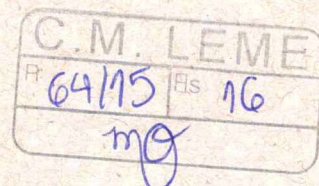 C.M. LEME
P. 64/15 Fls 16